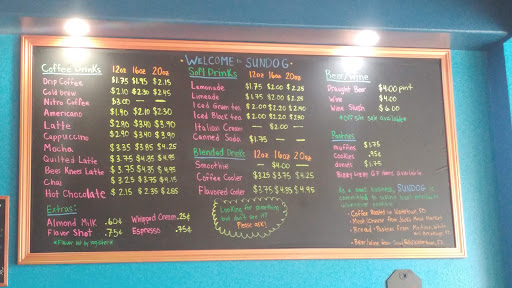 WELCOME to SUNDOG
Coffee Drinks 12oz 16oz 20oz
Drip Coffee $1.75 $1.95 $2.15
Cold brew $2.10 $2.30 $2.45
Nitro Coffee $3.00 — —
Americano $1.90 $2.10 $2.30
Latte $2.90 $3.40 $3.90
Cappuccino $2.90 $3.40 $3.90
Mocha $3.35 $3.85 $4.25
Quilted Latte $3.75 $4.35 $4.95
Bees Knees Latte $3.75 $4.35 $4.95
Chai $3.25 $3.75 $4.15
Hot Chocolate $2.15 $2.35 $2.65
Extras:
Almond Milk .60¢ Whipped Cream .25¢
Flavor Shot .75¢ Espresso .75¢
Soft Drinks 12oz 16oz 20oz
Lemonade $1.75 $2.00 $2.25
Limeade $1.75 $2.00 $2.25
Iced Green tea $2.00 $2.20 $2.40
Iced Black tea $2.00 $2.20 $2.40
Italian Cream — $2.00 —
Canned Soda $1.75 — —
Blended Drinks 12oz 16oz 20oz
Smoothie — $4.00 —
Coffee Cooler $3.25 $3.75 $4.25
Flavored Cooler $3.75 $4.35 $4.95
Looking for something
but don't see it?
Please ask!
Beer/Wine
Draught Beer $4.00 pint
Wine $4.00
Wine Slush $6.00
Pastries
muffins $1.75
Cookies .95¢
donuts $1.75
As a small business, SUNDOG is
committed to using local products
whenever possible